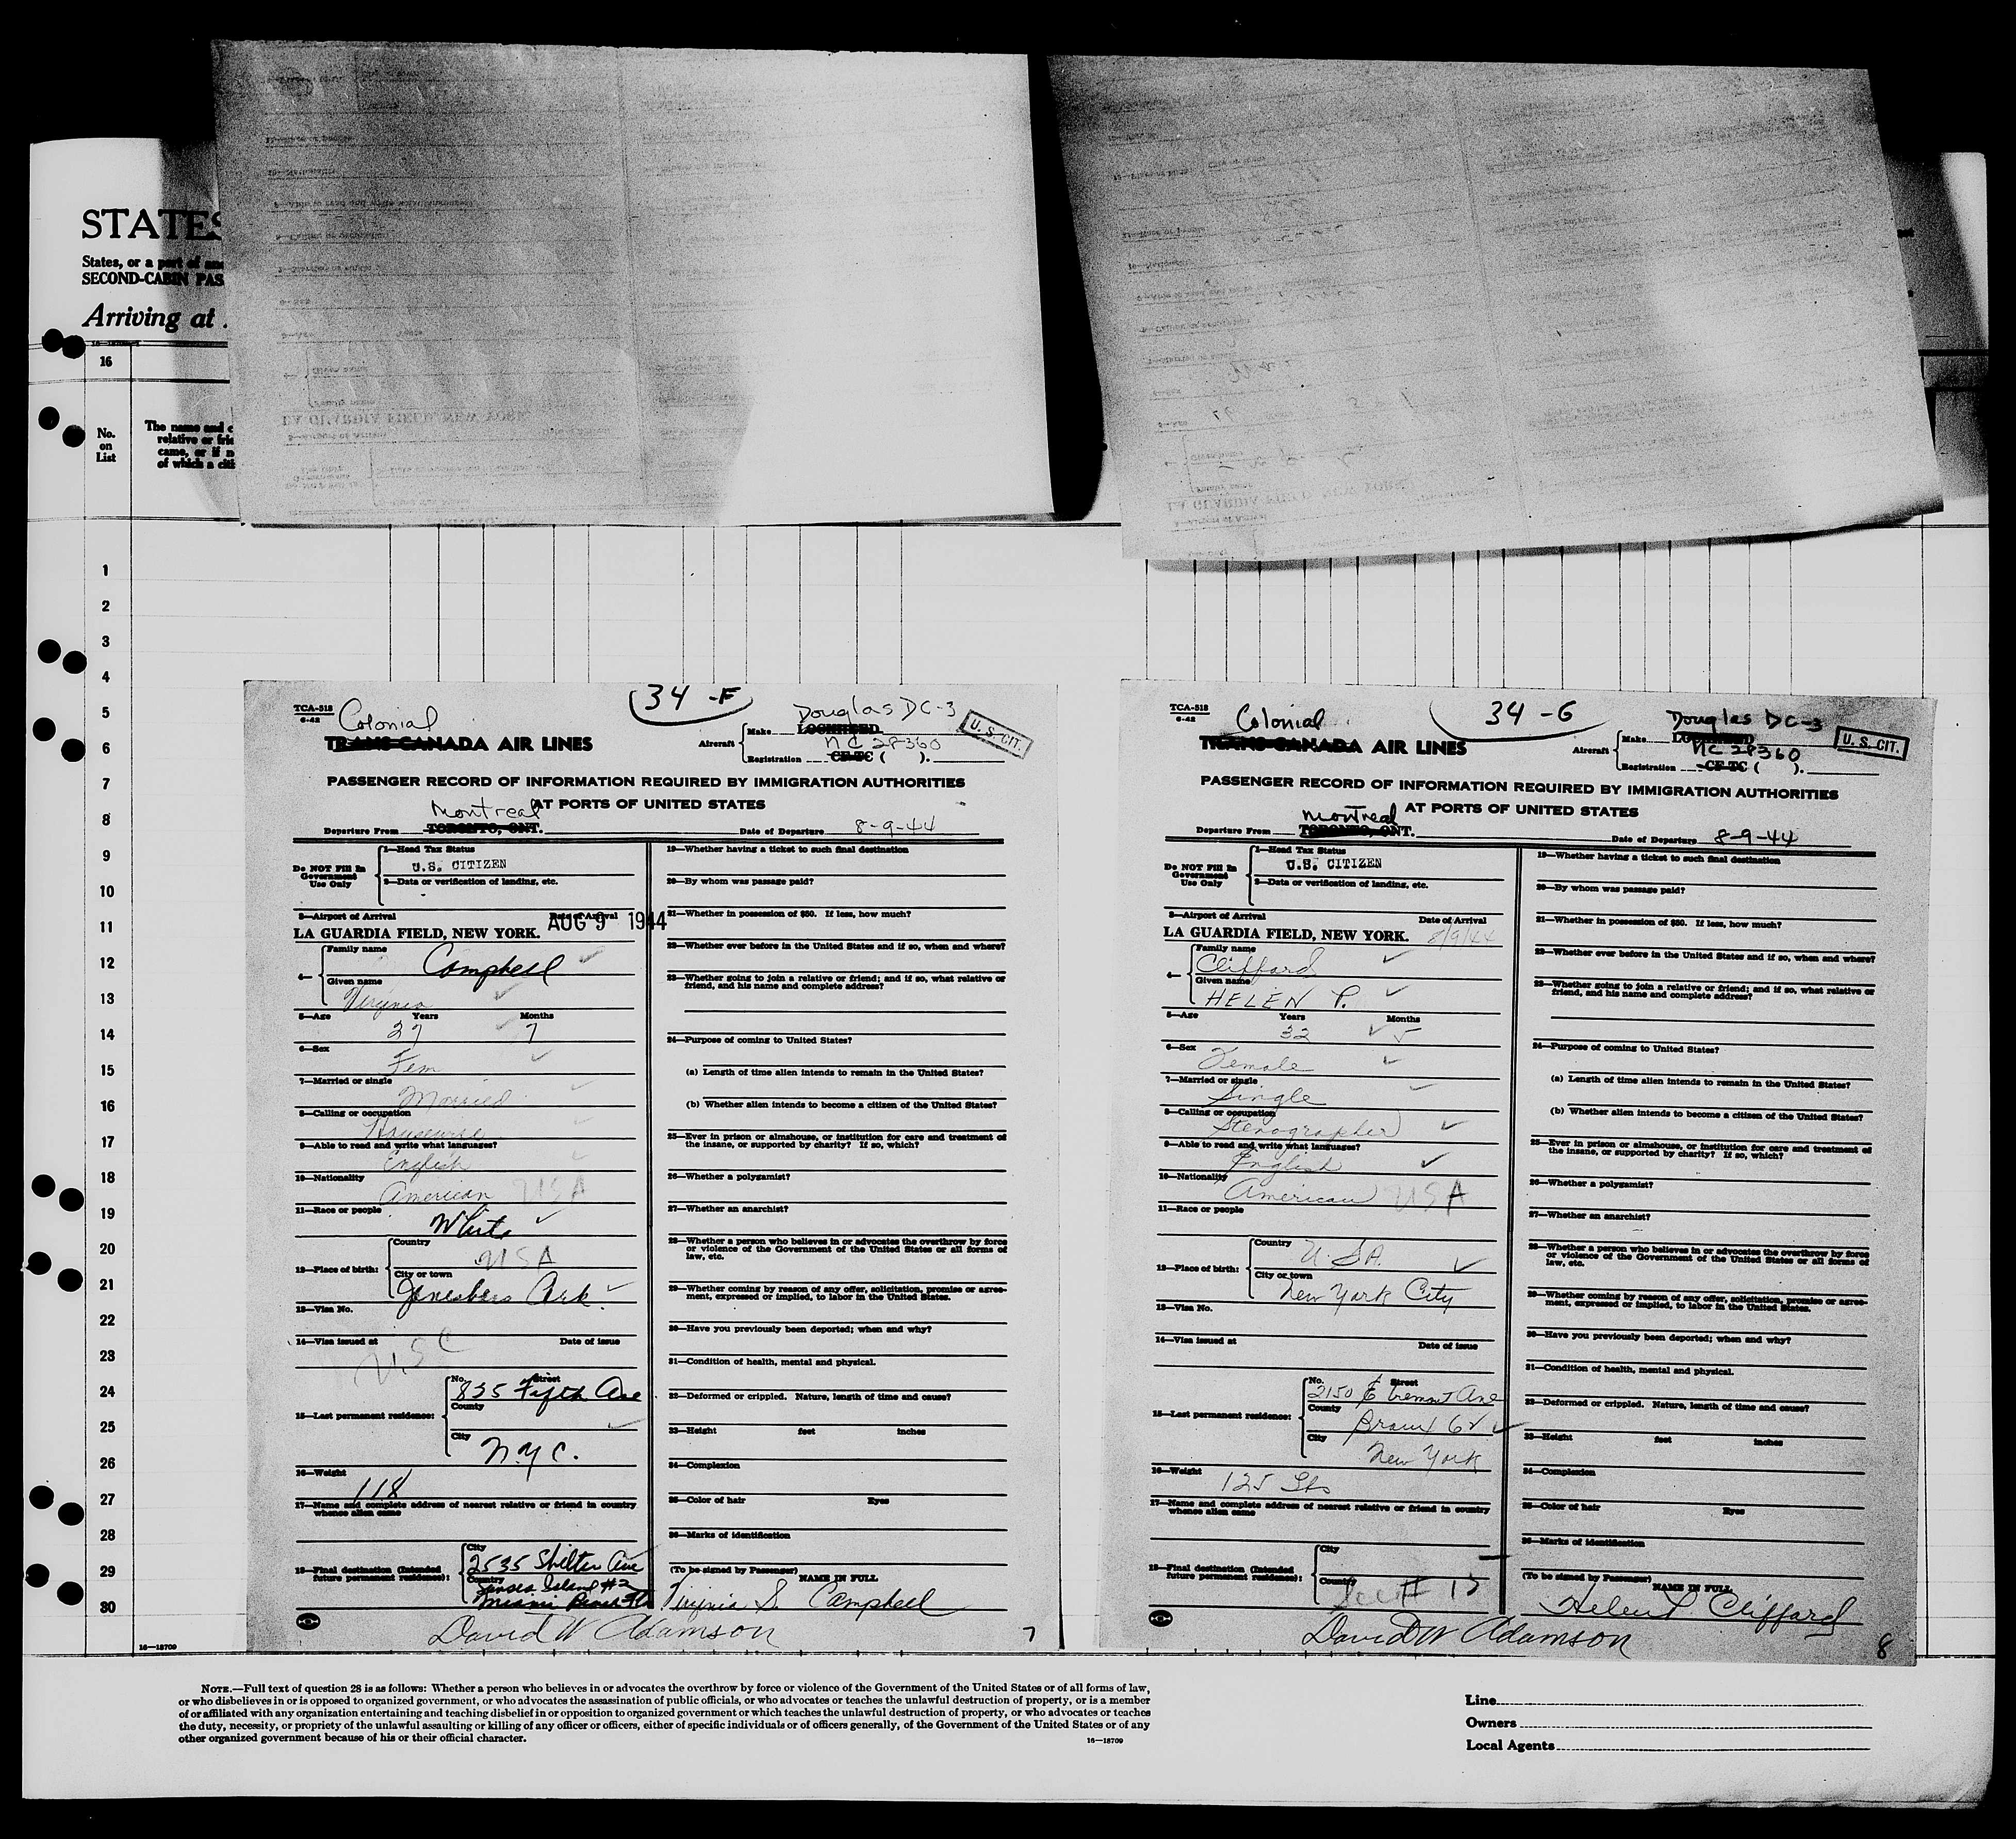 STATES
States, or a part of
SECOND-CABIN PAS
Arriving at
16
No.
on
List
The name and
relative or
came, or if
of which a
1
2
3
4
5
6
7
8
9
10
11
12
13
14
15
16
17
18
19
20
21
22
23
24
25
26
27
28
29
30
16—18709
34 -F
TCA-518
6-42
Colonial
TRANS-CANADA AIR LINES
Douglas DC-3
Aircraft
Make LOCKHEED
NC 28360
Registration CF-TC ( ).
U. S. CIT.
PASSENGER RECORD OF INFORMATION REQUIRED BY IMMIGRATION AUTHORITIES
AT PORTS OF UNITED STATES
Montreal
Departure From TORONTO, ONT.
Date of Departure 8-9-44
Do NOT Fill In
Government
Use Only
1—Head Tax Status
U.S. CITIZEN
2—Data or verification of landing, etc.
3—Airport of Arrival
Date of Arrival
LA GUARDIA FIELD, NEW YORK.
AUG 9 1944
4—
Family name
Campbell
Given name
Virginia
5—Age
Years
Months
27
7
6—Sex
Fem
7—Married or single
Married
8—Calling or occupation
Housewife
9—Able to read and write what languages?
English
10—Nationality
American USA
11—Race or people
White
12—Place of birth:
Country
USA
City or town
Ark.
13—Visa No.
14—Visa issued at
Date of issue
U.S C
15—Last permanent residence:
No.
Street
835 Fifth Ave
County
City
N.Y.C.
16—Weight
118
17—Name and complete address of nearest relative or friend in country
whence alien came
18—Final destination (Intended
future permanent residence):
City
2535 Shelter Ave
Country
Island #2
Miami Beach Fla
19—Whether having a ticket to such final destination
20—By whom was passage paid?
21—Whether in possession of $50. If less, how much?
22—Whether ever before in the United States and if so, when and where?
23—Whether going to join a relative or friend; and if so, what relative or
friend, and his name and complete address?
24—Purpose of coming to United States?
(a) Length of time alien intends to remain in the United States?
(b) Whether alien intends to become a citizen of the United States?
25—Ever in prison or almshouse, or institution for care and treatment of
the insane, or supported by charity? If so, which?
26—Whether a polygamist?
27—Whether an anarchist?
28—Whether a person who believes in or advocates the overthrow by force
or violence of the Government of the United States or all forms of
law, etc.
29—Whether coming by reason of any offer, solicitation, promise or agree-
ment, expressed or implied, to labor in the United States.
30—Have you previously been deported; when and why?
31—Condition of health, mental and physical.
32—Deformed or crippled. Nature, length of time and cause?
33—Height feet inches
34—Complexion
35—Color of hair Eyes
36—Marks of identification
(To be signed by Passenger)
NAME IN FULL
Virginia S. Campbell
David W Adamson
7
34 -G
TCA-518
6-42
Colonial
TRANS-CANADA AIR LINES
Douglas DC-3
Aircraft
Make LOCKHEED
NC 28360
Registration CF-TC ( ).
U. S. CIT.
PASSENGER RECORD OF INFORMATION REQUIRED BY IMMIGRATION AUTHORITIES
AT PORTS OF UNITED STATES
Montreal
Departure From TORONTO, ONT.
Date of Departure 8-9-44
Do NOT Fill In
Government
Use Only
1—Head Tax Status
U.S. CITIZEN
2—Data or verification of landing, etc.
3—Airport of Arrival
Date of Arrival
LA GUARDIA FIELD, NEW YORK. 8/9/44
4—
Family name
Clifford
Given name
HELEN P.
5—Age
Years
Months
32
5
6—Sex
Female
7—Married or single
Single
8—Calling or occupation
Stenographer
9—Able to read and write what languages?
English
10—Nationality
American USA
11—Race or people
12—Place of birth:
Country
U. S.A.
City or town
New York City
13—Visa No.
14—Visa issued at
Date of issue
15—Last permanent residence:
No.
Street
2150 E Tremont Ave
County
Bronx 62
City
New York
16—Weight
125 Lbs
17—Name and complete address of nearest relative or friend in country
whence alien came
18—Final destination (Intended
future permanent residence):
City
Country
# 15
19—Whether having a ticket to such final destination
20—By whom was passage paid?
21—Whether in possession of $50. If less, how much?
22—Whether ever before in the United States and if so, when and where?
23—Whether going to join a relative or friend; and if so, what relative or
friend, and his name and complete address?
24—Purpose of coming to United States?
(a) Length of time alien intends to remain in the United States?
(b) Whether alien intends to become a citizen of the United States?
25—Ever in prison or almshouse, or institution for care and treatment of
the insane, or supported by charity? If so, which?
26—Whether a polygamist?
27—Whether an anarchist?
28—Whether a person who believes in or advocates the overthrow by force
or violence of the Government of the United States or all forms of
law, etc.
29—Whether coming by reason of any offer, solicitation, promise or agree-
ment, expressed or implied, to labor in the United States.
30—Have you previously been deported; when and why?
31—Condition of health, mental and physical.
32—Deformed or crippled. Nature, length of time and cause?
33—Height feet inches
34—Complexion
35—Color of hair Eyes
36—Marks of identification
(To be signed by Passenger)
NAME IN FULL
Helen P Clifford
David W Adamson
8
NOTE.—Full text of question 28 is as follows: Whether a person who believes in or advocates the overthrow by force or violence of the Government of the United States or of all forms of law,
or who disbelieves in or is opposed to organized government, or who advocates the assassination of public officials, or who advocates or teaches the unlawful destruction of property, or is a member
of or affiliated with any organization entertaining and teaching disbelief in or opposition to organized government or which teaches the unlawful destruction of property, or who advocates or teaches
the duty, necessity, or propriety of the unlawful assaulting or killing of any officer or officers, either of specific individuals or of officers generally, of the Government of the United States or of any
other organized government because of his or their official character.
16—18709
Line
Owners
Local Agents